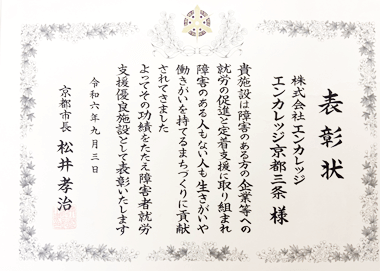 表彰状
株式会社エンカレッジ
エンカレッジ京都三条 様
貴施設は障害のある方の企業等への
就労の促進と定着支援に取り組まれ
障害のある人もない人も生きがいや
働きがいを持てるまちづくりに貢献
されてきました
よってその功績をたたえ障害者就労
支援優良施設として表彰いたします
令和六年九月三日
京都市長 松井孝治